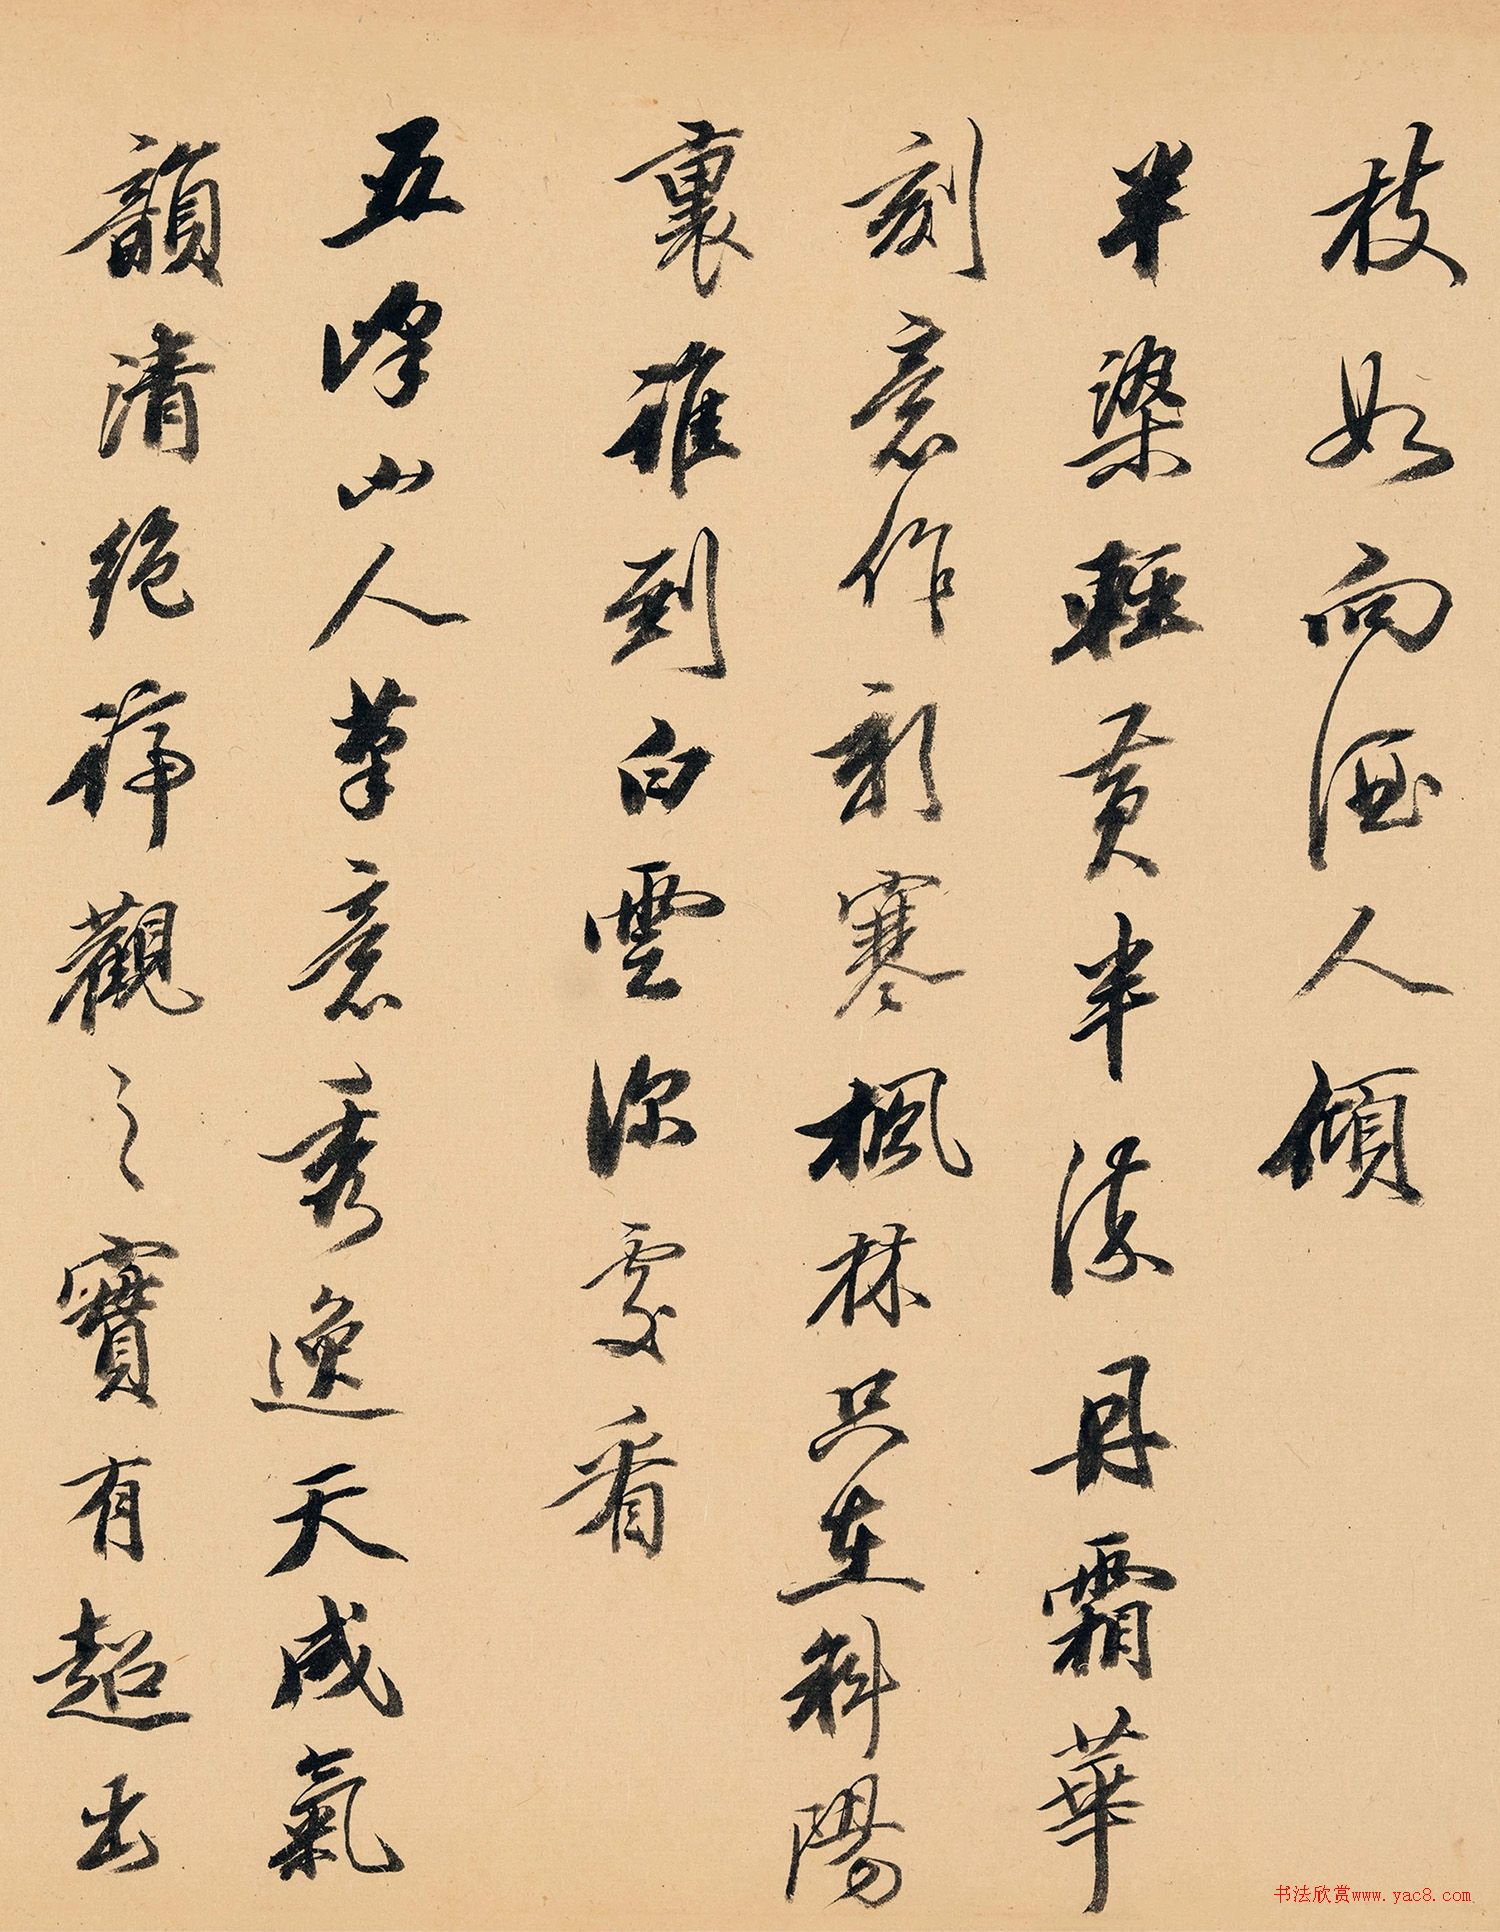 枝如向酒人傾
半染輕黃半染丹霜華
刻意作新寒楓林只在斜陽
裏誰到白雲深處看
五峰山人筆意秀逸天成氣
韻清絕稱觀之實有超出
书法欣赏www.yac8.com